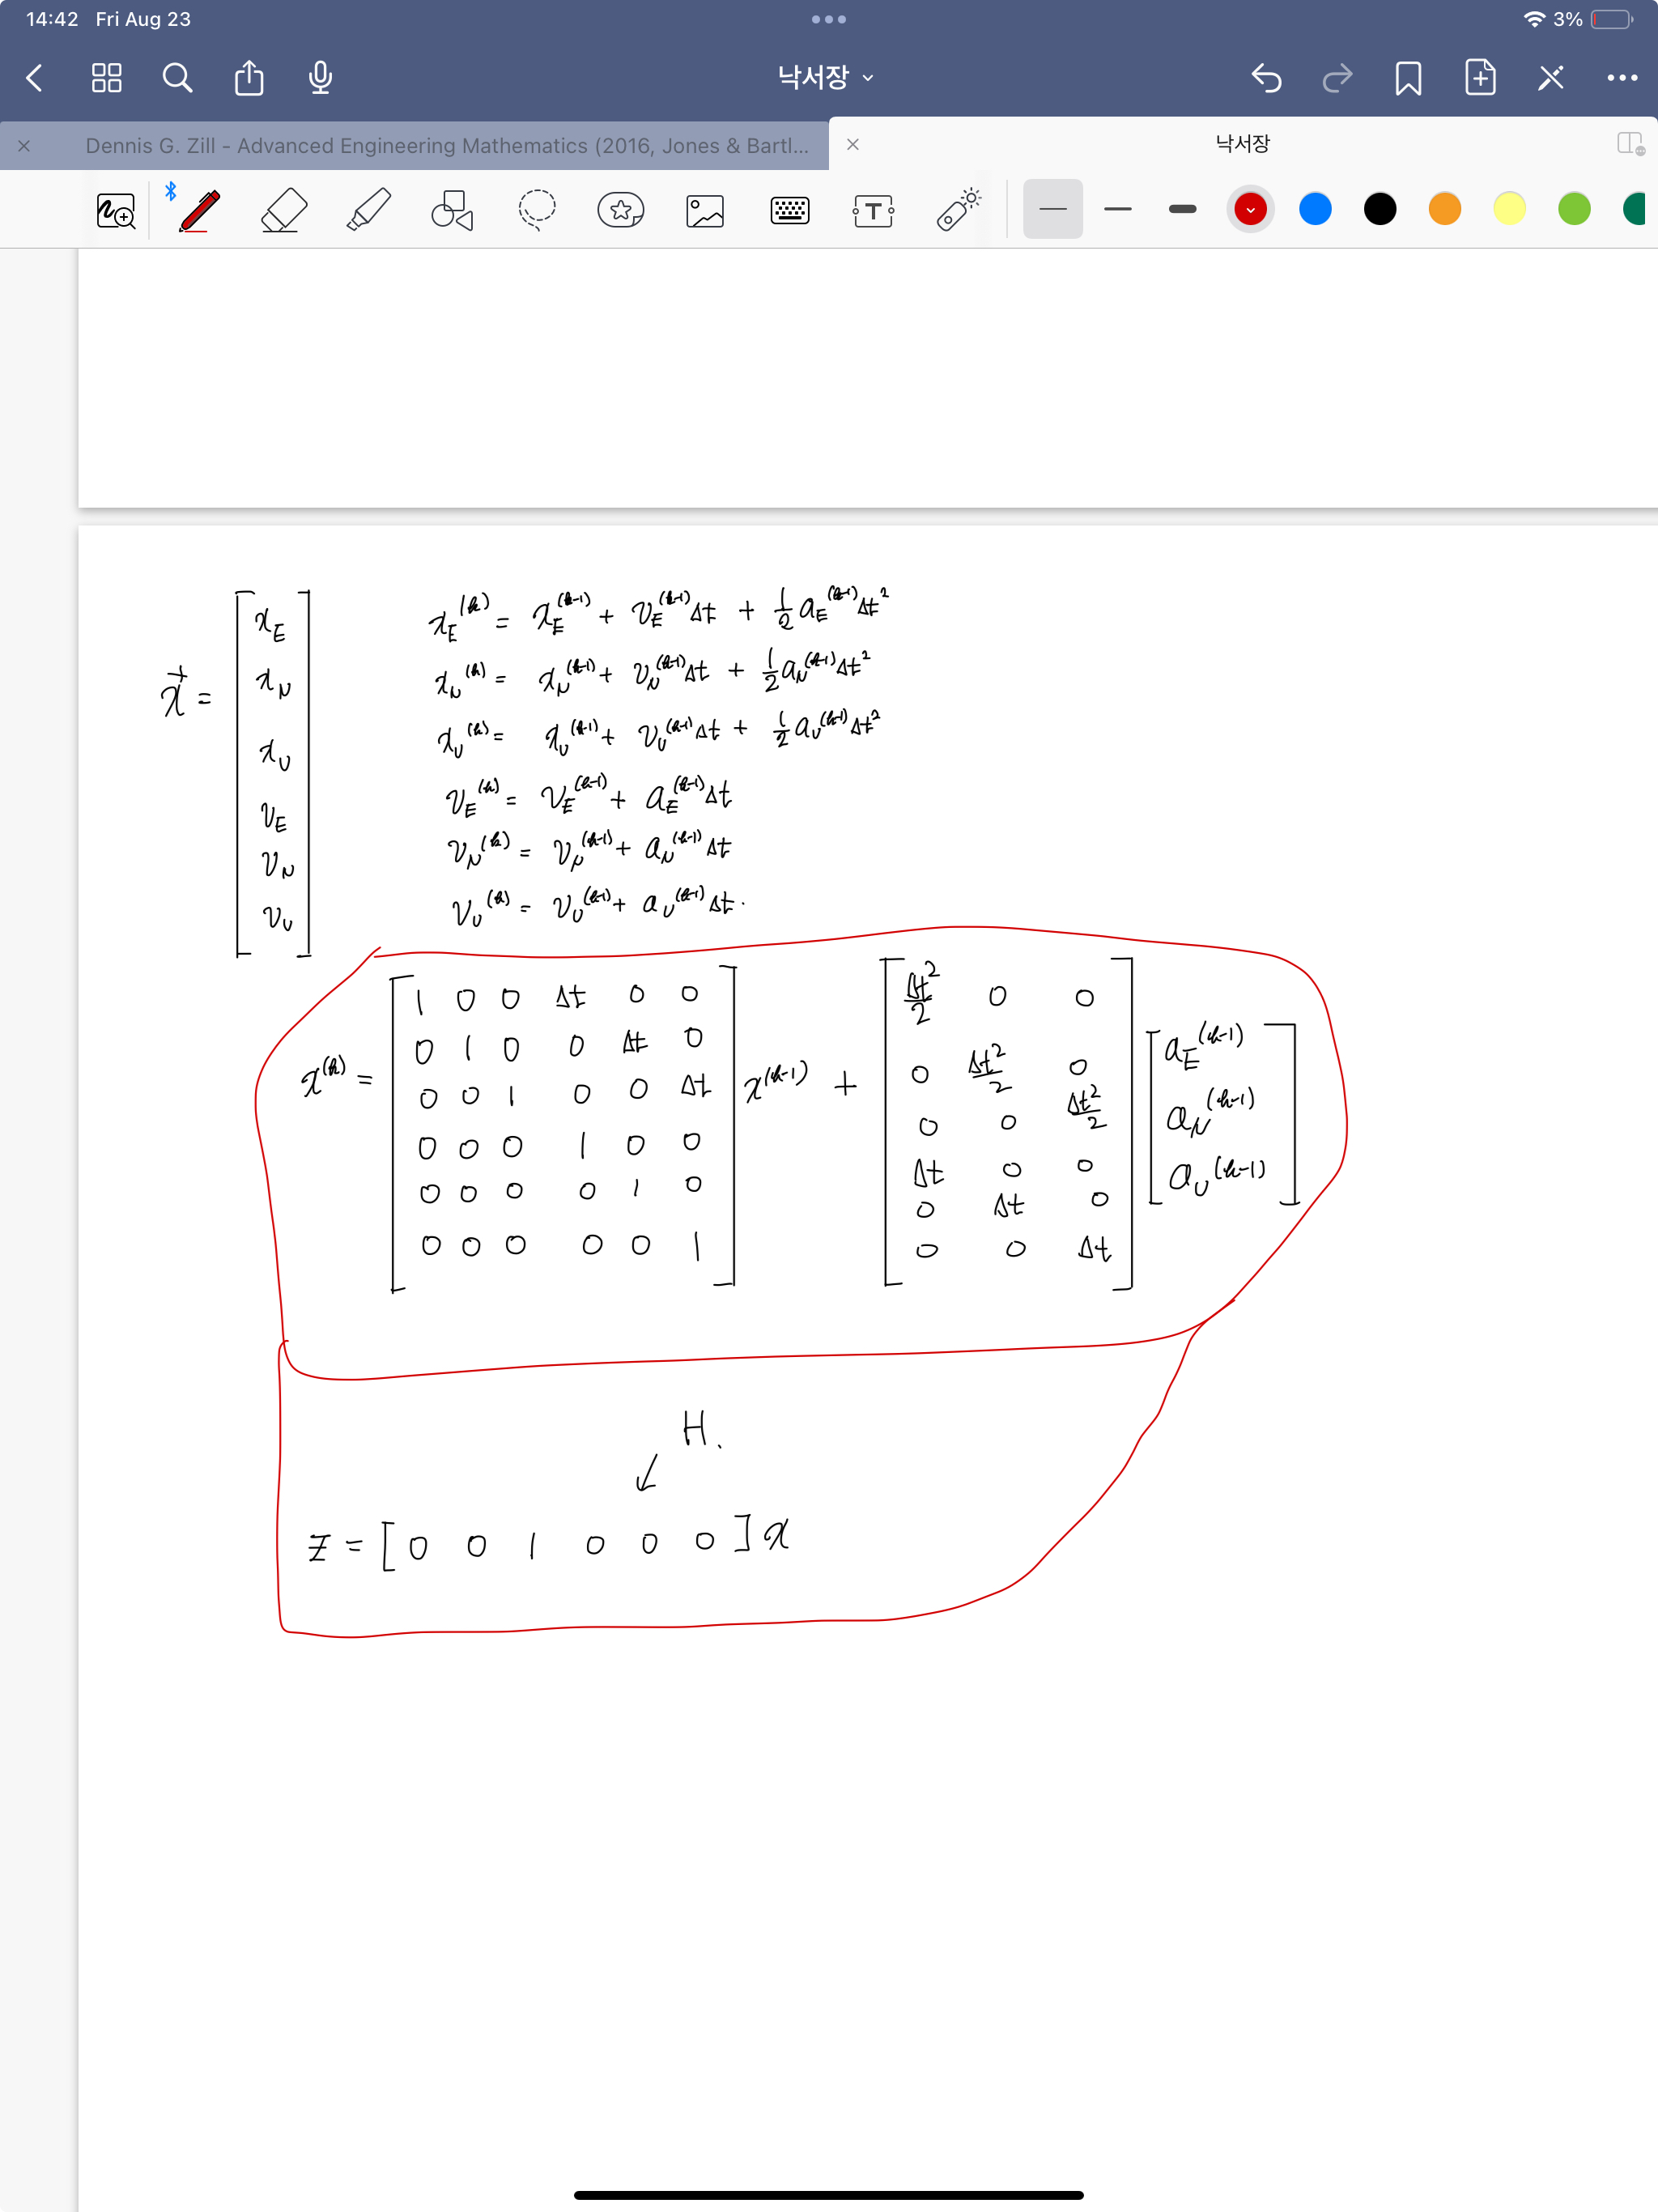 14:42 Fri Aug 23 3%
낙서장
Dennis G. Zill - Advanced Engineering Mathematics (2016, Jones & Bartl...
낙서장
x⃗ = [ x_E x_N x_U v_E v_N v_U ]
x_E^(k) = x_E^(k-1) + v_E^(k-1) Δt + 1/2 a_E^(k-1) Δt²
x_N^(k) = x_N^(k-1) + v_N^(k-1) Δt + 1/2 a_N^(k-1) Δt²
x_U^(k) = x_U^(k-1) + v_U^(k-1) Δt + 1/2 a_U^(k-1) Δt²
v_E^(k) = v_E^(k-1) + a_E^(k-1) Δt
v_N^(k) = v_N^(k-1) + a_N^(k-1) Δt
v_U^(k) = v_U^(k-1) + a_U^(k-1) Δt.
x^(k) = [
1 0 0 Δt 0 0
0 1 0 0 Δt 0
0 0 1 0 0 Δt
0 0 0 1 0 0
0 0 0 0 1 0
0 0 0 0 0 1
] x^(k-1) + [
Δt²/2 0 0
0 Δt²/2 0
0 0 Δt²/2
Δt 0 0
0 Δt 0
0 0 Δt
] [
a_E^(k-1)
a_N^(k-1)
a_U^(k-1)
]
H.
z = [ 0 0 1 0 0 0 ] x